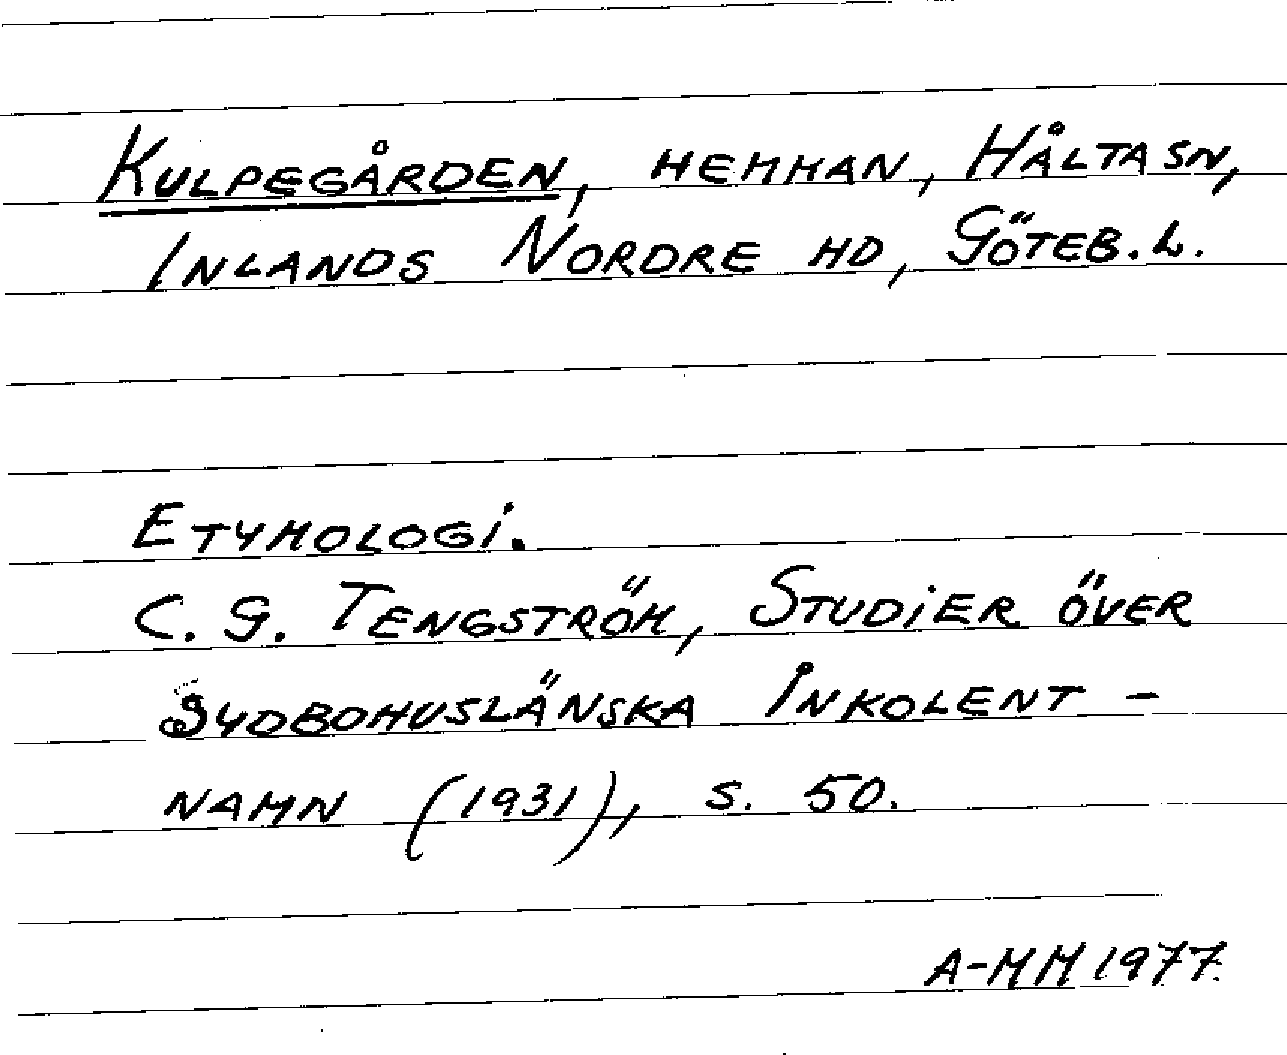 Kulpegården, hemman, Hålta sn,
Inlands Nordre hd, Göteb. L.
Etymologi.
C. G. Tengström, Studier över
sydbohuslänska Inkolent-
namn (1931), s. 50.
A-MM 1977.